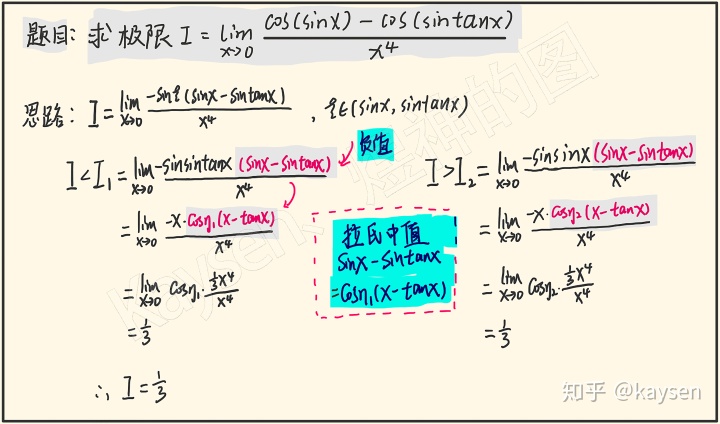 题目: 求极限 I = lim_{x→0} \frac{cos(sinx) - cos(sintanx)}{x^4}
思路: I = lim_{x→0} \frac{-sinξ(sinx-sintanx)}{x^4} , ξ∈(sinx, sintanx)
负值
I < I₁ = lim_{x→0} \frac{-sinsintanx (sinx-sintanx)}{x^4}
= lim_{x→0} \frac{-x·cosη₁(x-tanx)}{x^4}
= lim_{x→0} cosη₁·\frac{\frac{1}{3}x^4}{x^4}
= \frac{1}{3}
拉氏中值
sinx-sintanx
=cosη₁(x-tanx)
I > I₂ = lim_{x→0} \frac{-sinsinx(sinx-sintanx)}{x^4}
= lim_{x→0} \frac{-x·cosη₂(x-tanx)}{x^4}
= lim_{x→0} cosη₂·\frac{\frac{1}{3}x^4}{x^4}
= \frac{1}{3}
∴ I = \frac{1}{3}
Kaysen 煌神的图
知乎 @kaysen